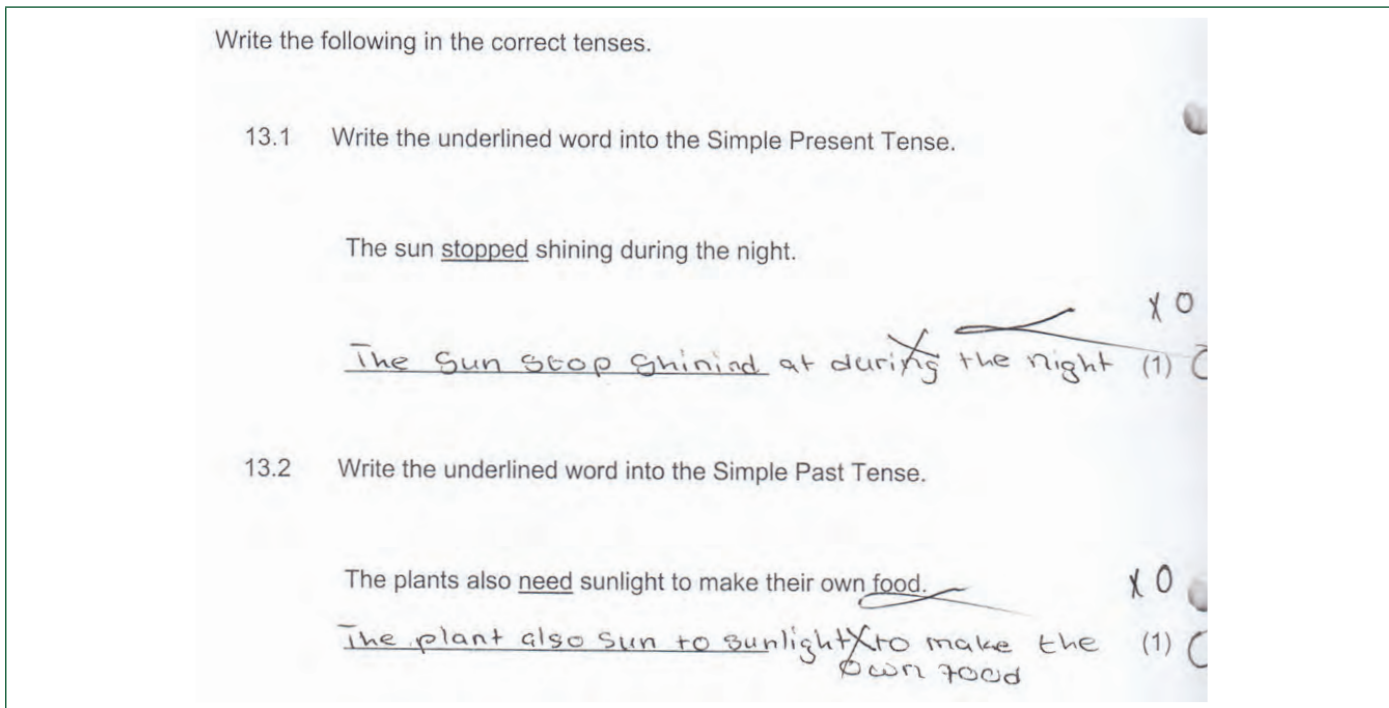 Write the following in the correct tenses.
13.1 Write the underlined word into the Simple Present Tense.
The sun stopped shining during the night.
X 0
The Sun Stop Shinind at during the night (1)
13.2 Write the underlined word into the Simple Past Tense.
The plants also need sunlight to make their own food.
X 0
The plant also Sun to Sunlight to make the (1)
own food